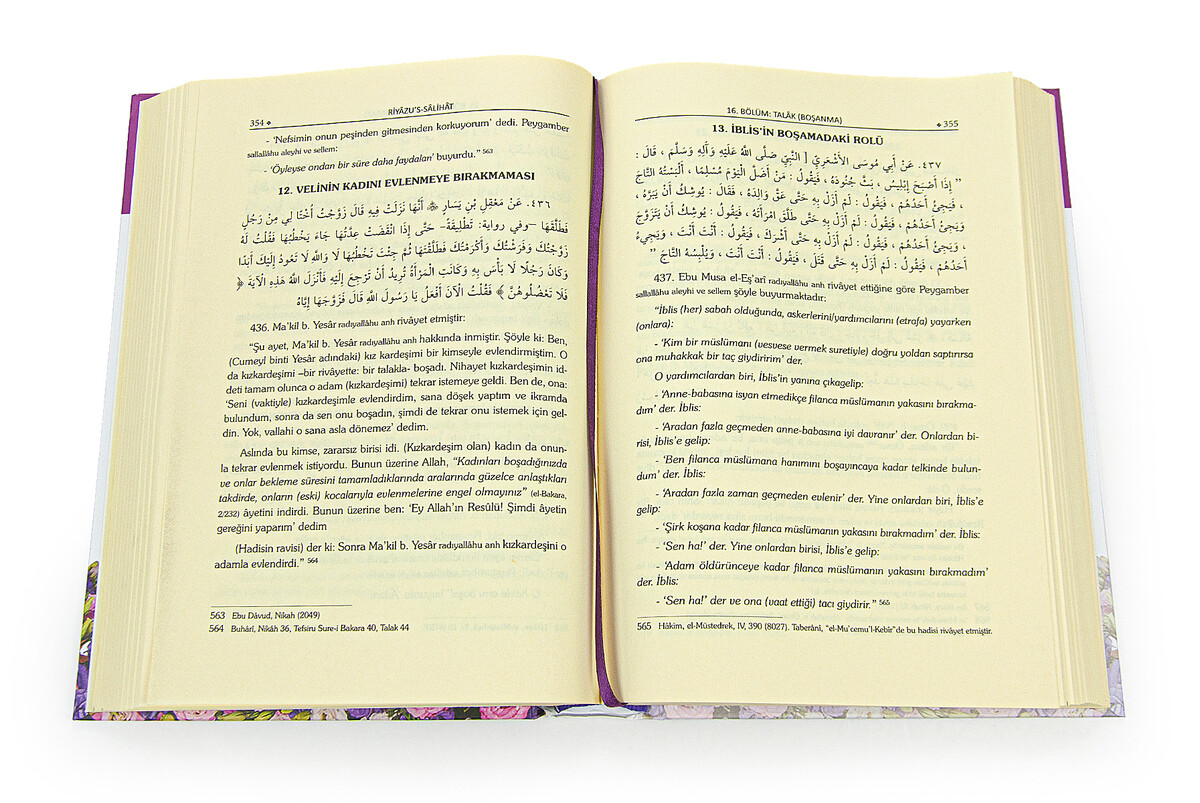 354 RİYÂZU'S-SÂLİHÂT
- 'Nefsimin onun peşinden gitmesinden korkuyorum' dedi. Peygamber
sallallâhu aleyhi ve sellem:
- 'Öyleyse ondan bir süre daha faydalan' buyurdu." 563
12. VELİNİN KADINI EVLENMEYE BIRAKMAMASI
٤٣٦. عَنْ مَعْقِلِ بْنِ يَسَارٍ أَنَّهَا نَزَلَتْ فِيهِ قَالَ زَوَّجْتُ أُخْتًا لِي مِنْ رَجُلٍ
فَطَلَّقَهَا –وفي رواية: تَطْلِيقَةً– حَتَّى إِذَا انْقَضَتْ عِدَّتُهَا جَاءَ يَخْطُبُهَا فَقُلْتُ لَهُ
زَوَّجْتُكَ وَفَرَشْتُكَ وَأَكْرَمْتُكَ فَطَلَّقْتَهَا ثُمَّ جِئْتَ تَخْطُبُهَا لَا وَاللهِ لَا تَعُودُ إِلَيْكَ أَبَدًا
وَكَانَ رَجُلًا لَا بَأْسَ بِهِ وَكَانَتِ الْمَرْأَةُ تُرِيدُ أَنْ تَرْجِعَ إِلَيْهِ فَأَنْزَلَ اللهُ هَذِهِ الْآيَةَ ﴿
فَلَا تَعْضُلُوهُنَّ ﴾ فَقُلْتُ الْآنَ أَفْعَلُ يَا رَسُولَ اللهِ قَالَ فَزَوَّجَهَا إِيَّاهُ
436. Ma'kil b. Yesâr radıyallâhu anh rivâyet etmiştir:
"Şu ayet, Ma'kil b. Yesâr radıyallâhu anh hakkında inmiştir. Şöyle ki: Ben,
(Cumeyl binti Yesâr adındaki) kız kardeşimi bir kimseyle evlendirmiştim. O
da kızkardeşimi –bir rivâyette: bir talakla- boşadı. Nihayet kızkardeşimin id-
deti tamam olunca o adam (kızkardeşimi) tekrar istemeye geldi. Ben de, ona:
'Seni (vaktiyle) kızkardeşimle evlendirdim, sana döşek yaptım ve ikramda
bulundum, sonra da sen onu boşadın, şimdi de tekrar onu istemek için gel-
din. Yok, vallahi o sana asla dönemez' dedim.
Aslında bu kimse, zararsız birisi idi. (Kızkardeşim olan) kadın da onun-
la tekrar evlenmek istiyordu. Bunun üzerine Allah, "Kadınları boşadığınızda
ve onlar bekleme süresini tamamladıklarında aralarında güzelce anlaştıkları
takdirde, onların (eski) kocalarıyla evlenmelerine engel olmayınız" (el-Bakara,
2/232) âyetini indirdi. Bunun üzerine ben: 'Ey Allah'ın Resûlü! Şimdi âyetin
gereğini yaparım' dedim
(Hadisin ravisi) der ki: Sonra Ma'kil b. Yesâr radıyallâhu anh kızkardeşini o
adamla evlendirdi." 564
563 Ebu Dâvud, Nikah (2049)
564 Buhârî, Nikâh 36, Tefsiru Sure-i Bakara 40, Talak 44
16. BÖLÜM: TALÂK (BOŞANMA) 355
13. İBLİS'İN BOŞAMADAKİ ROLÜ
٤٣٧. عَنْ أَبِي مُوسَى الْأَشْعَرِيِّ [ النَّبِيِّ صَلَّى اللهُ عَلَيْهِ وَآلِهِ وَسَلَّمَ ، قَالَ :
" إِذَا أَصْبَحَ إِبْلِيسُ ، بَثَّ جُنُودَهُ ، فَيَقُولُ : مَنْ أَضَلَّ الْيَوْمَ مُسْلِمًا ، أَلْبَسْتُهُ التَّاجَ
، فَيَجِيءُ أَحَدُهُمْ ، فَيَقُولُ : لَمْ أَزَلْ بِهِ حَتَّى عَقَّ وَالِدَهُ ، فَقَالَ : يُوشِكُ أَنْ يَبَرَّهُ ،
وَيَجِيءُ أَحَدُهُمْ ، فَيَقُولُ : لَمْ أَزَلْ بِهِ حَتَّى طَلَّقَ امْرَأَتَهُ ، فَيَقُولُ : يُوشِكُ أَنْ يَتَزَوَّجَ
، وَيَجِيءُ أَحَدُهُمْ ، فَيَقُولُ : لَمْ أَزَلْ بِهِ حَتَّى أَشْرَكَ ، فَيَقُولُ : أَنْتَ أَنْتَ ، وَيَجِيءُ
أَحَدُهُمْ ، فَيَقُولُ : لَمْ أَزَلْ بِهِ حَتَّى قَتَلَ ، فَيَقُولُ : أَنْتَ أَنْتَ ، وَيُلْبِسُهُ التَّاجَ "
437. Ebu Musa el-Eş'arî radıyallâhu anh rivâyet ettiğine göre Peygamber
sallallâhu aleyhi ve sellem şöyle buyurmaktadır:
"İblis (her) sabah olduğunda, askerlerini/yardımcılarını (etrafa) yayarken
(onlara):
- 'Kim bir müslümanı (vesvese vermek suretiyle) doğru yoldan saptırırsa
ona muhakkak bir taç giydiririm' der.
O yardımcılardan biri, İblis'in yanına çıkagelip:
- 'Anne-babasına isyan etmedikçe filanca müslümanın yakasını bırakma-
dım' der. İblis:
- 'Aradan fazla geçmeden anne-babasına iyi davranır' der. Onlardan bi-
risi, İblis'e gelip:
- 'Ben filanca müslümana hanımını boşayıncaya kadar telkinde bulun-
dum' der. İblis:
- 'Aradan fazla zaman geçmeden evlenir' der. Yine onlardan biri, İblis'e
gelip:
- 'Şirk koşana kadar filanca müslümanın yakasını bırakmadım' der. İblis:
- 'Sen ha!' der. Yine onlardan birisi, İblis'e gelip:
- 'Adam öldürünceye kadar filanca müslümanın yakasını bırakmadım'
der. İblis:
- 'Sen ha!' der ve ona (vaat ettiği) tacı giydirir." 565
565 Hâkim, el-Müstedrek, IV, 390 (8027). Taberânî, "el-Mu'cemu'l-Kebîr"de bu hadisi rivâyet etmiştir.